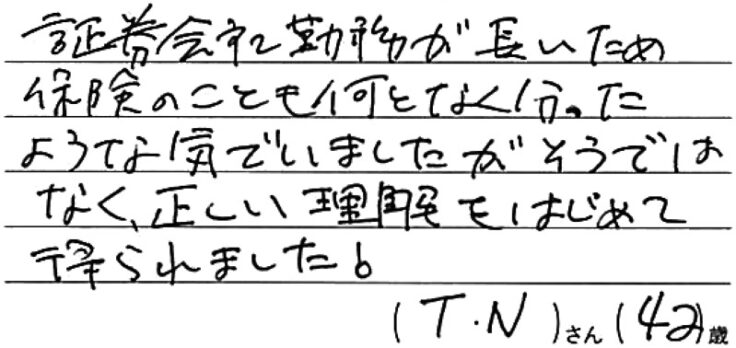 証券会社勤務が長いため
保険のことも何となく分った
ような気でいましたがそうでは
なく、正しい理解をはじめて
得られました。
(T.N)さん(42)歳